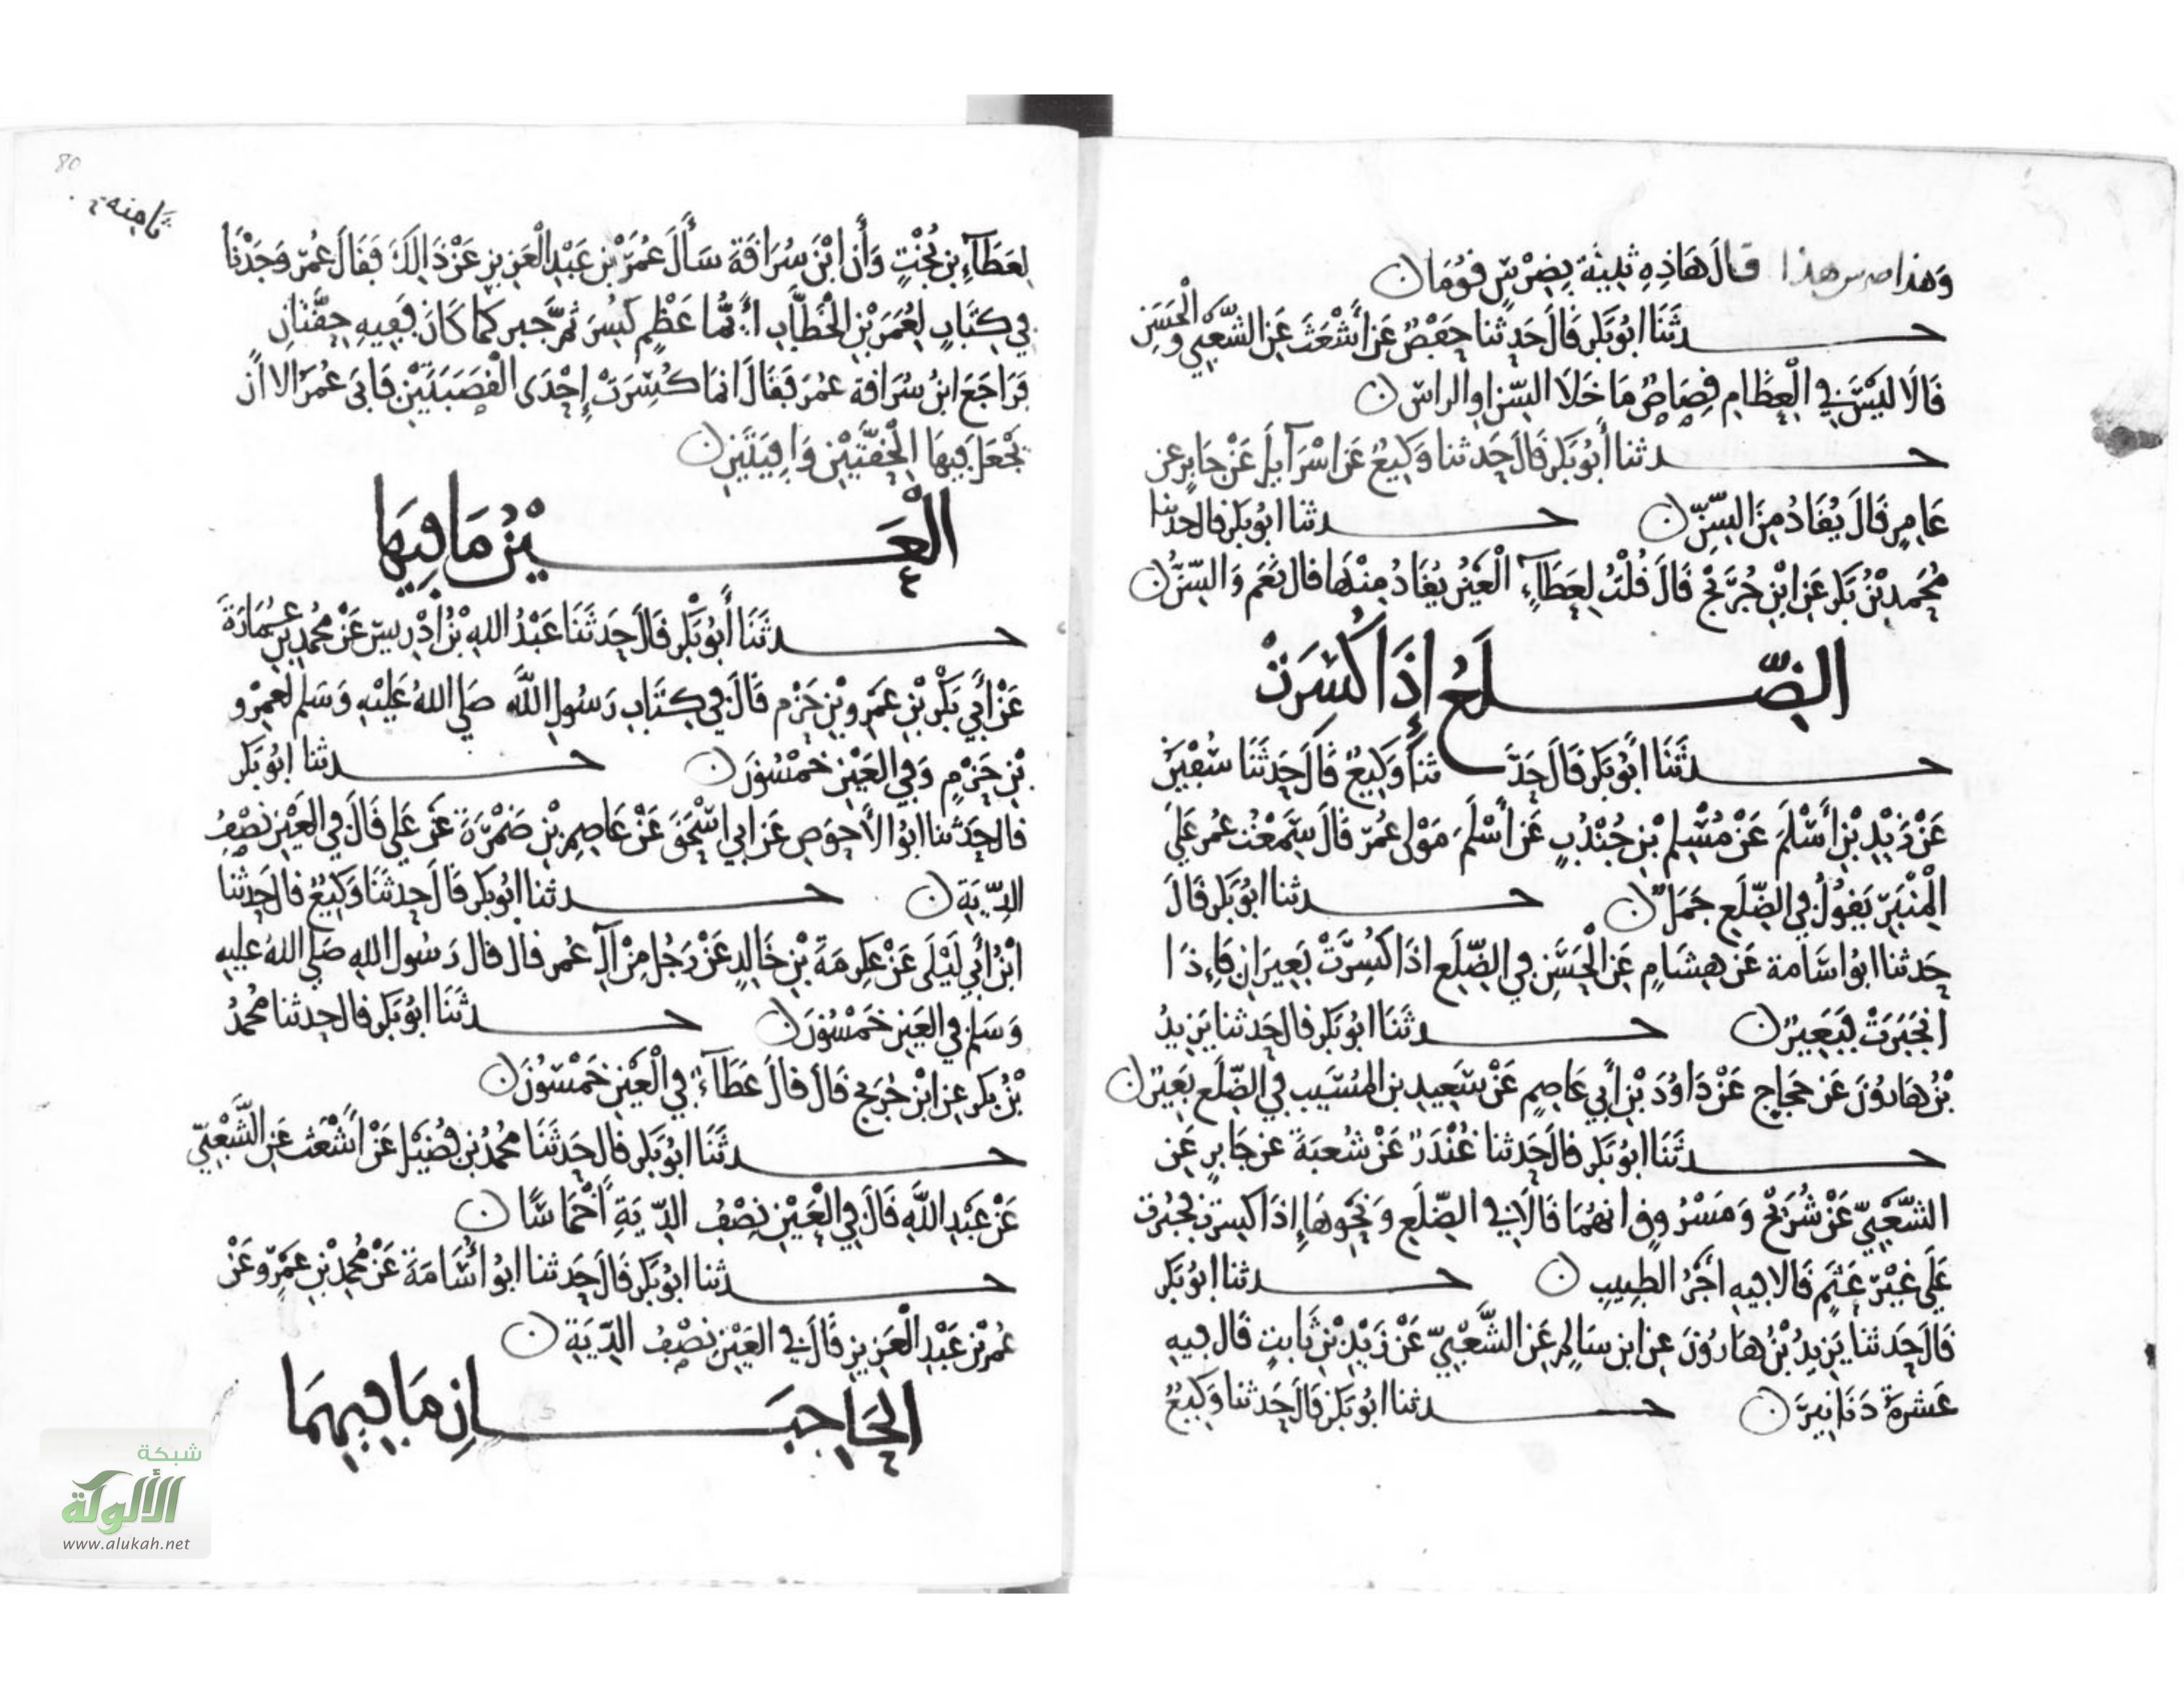 وَهذا ضرس هذا قَالَ هَاذِهِ ثَنِيَّة بِضِرْسٍ قُومَا ن
حدثَنَا ابُو بَكر قَالَ حَدثنا حَفْصٌ عَن أَشْعَثَ عَنِ الشَّعْبِي وَالْحَسَنِ
قَالَا لَيْسَ فِي الْعِظَامِ قِصَاصٌ مَا خَلَا السِّن اوِ الراس ن
حدثنا أَبُو بَكر قَالَ حَدثنا وَكِيعٌ عَن اسْرَآيلَ عَنْ جَابِرٍ عن
عَامِرٍ قَالَ يُقَادُ مِنَ السِّنِّ ن حدثنا ابُو بَكر قال حدثنا
مُحَمدُ بْنُ بَكر عَنِ ابْنِ جُرَيْجٍ قَالَ قُلْتُ لِعَطَآءٍ الْعَيْنُ يُقَادُ مِنْهَا قال نَعَم وَالسِّنُّ ن
الضِّلَعُ إِذَا كُسِرَتْ
حدثَنَا أَبُو بَكر قَالَ حَدَّثنَا وَكِيعٌ قَالَ حَدثَنَا سُفْيَنُ
عَنْ زَيْدِ بْنِ أَسْلَمَ عَنْ مُسْلِمِ بْنِ جُنْدُبٍ عَن أَسْلَمَ مَوْلى عُمَرَ قَالَ سَمِعْتُ عُمر عَلَى
الْمِنْبَرِ يَقُولُ فِي الضِّلَعِ جَمَلٌ ن حدثنا ابُو بَكر قَالَ
حَدثنا ابُو اسَامة عَن هِشَامٍ عَنِ الْحَسَنِ فِي الضِّلَعِ اذَا كُسِرَتْ بَعِيرَانِ فَاِذَا
انْجَبَرَتْ فَبَعِيرٌ ن حدثَنَا ابُو بَكر قال حَدثنا يَزِيدُ
بْنُ هَارُونَ عَن حَجاجٍ عَنْ دَاوُدَ بْنِ أَبِي عَاصِمٍ عَنْ سَعِيدِ بن المُسَيبِ فِي الضِّلَعِ بَعِيرٌ ن
حدثَنَا ابُو بَكر قال حَدثنا غُنْدَرٌ عَنْ شُعبَةَ عن جَابِرٍ عَنِ
الشَّعْبِيّ عَنْ شُرَيْحٍ وَمَسْرُوقٍ انهُمَا قَالَا فِي الضِّلَعِ وَنَحْوِهَا إِذَا كسرت فجُبِرَتْ
عَلَى غَيْرِ عَثَمٍ قَالا فِيهِ أَجْرُ الطَّبِيبِ ن حدثنا ابُو بَكر
قَالَ حَدثنا يَزِيدُ بْنُ هَارُونَ عنِ ابن سَالِمٍ عَنِ الشَّعْبِيّ عَنْ زَيْدِ بْنِ ثَابتٍ قال فِيهِ
عَشرةُ دَنَانِيرَ ن حدثنا ابُو بَكر قَالَ حَدثنا وَكِيعٌ
80
ثامنة
لِعَطَآءِ بنِ بُخْتٍ وَأن ابْنَ سُرَاقَةَ سَأَلَ عُمَرَ بْنَ عَبْدِ الْعَزِيزِ عَنْ ذَالِكَ فَقَالَ عُمَر وَجَدْنَا
فِي كِتَابٍ لِعُمَرَ بْنِ الْخَطَّابِ أَيُّمَا عَظْمٍ كُسِرَ ثُمَّ جبر كما كَانَ فَفِيهِ حِقَّتَانِ
فَرَاجَعَ ابنُ سُرَاقة عمَرَ فَقَالَ انمَا كُسِرَتْ إِحْدَى الْقَصَبَتَيْنِ فَابَى عُمَرُ الا اَن
تَجْعَلَ فِيهَا الْحِقَّتَيْنِ وَافِيَتَيْنِ ن
الْعَيْنُ مَا فِيهَا
حدثَنَا أَبُو بَكر قَالَ حَدثَنَا عَبْدُ اللهِ بْنُ ادْرِيسَ عَنْ مُحمدِ بنِ عُمَارَةَ
عَنْ أَبِي بَكْرِ بْنِ عَمْرِو بْنِ حَزْمٍ قَالَ فِي كِتَابِ رَسُولِ اللَّهِ صَلى اللهُ عَلَيْهِ وَسَلم لعَمْرِو
بْنِ حَزْمٍ وَفِي العَيْنِ خَمْسُونَ ن حدثنا ابُو بَكر
قال حَدثنا ابُو الأَحوَصِ عَن ابي اسْحَقَ عَنْ عَاصِمِ بْنِ ضَمْرَةَ عَن عَلي قَالَ فِي العَيْنِ نِصْفُ
الدِّيَةِ ن حدثنا ابُو بَكر قَالَ حَدثَنَا وَكِيعٌ قال حَدثَنَا
ابْنُ أَبِي لَيْلَى عَنْ عِكرِمَةَ بْنِ خَالِدٍ عَنْ رَجُلٍ مِنْ آلِ عُمر قال قال رَسُول اللهِ صَلى اللهُ عليه
وَسَلم فِي العَيْنِ خَمْسُونَ ن حدثَنَا ابُو بَكر قال حدثنا مُحمدُ
بْنُ بَكر عنِ ابْنِ جُرَيْجٍ قَالَ قالَ عَطَآءٌ فِي الْعَيْنِ خَمْسُونَ ن
حدثَنَا ابُو بَكر قال حَدثَنَا مُحمدُ بن فُضَيْلٍ عَنْ أَشْعَثَ عَنِ الشَّعْبِيّ
عَنْ عَبْدِ اللَّهِ قَالَ فِي الْعَيْنِ نِصْفُ الدِّيَةِ أَخْمَاسًا ن
حدثنا ابُو بَكر قَالَ حَدثنا ابُو أُسَامَةَ عَنْ مُحمدِ بْنِ عَمْرٍو عَنْ
عُمَر بْنِ عَبْدِ الْعَزِيزِ قَالَ فِي العَيْنِ نِصْفُ الدِّيَةِ ن
الْحَاجِبَانِ مَا فِيهِمَا
شبكة
الألوكة
www.alukah.net